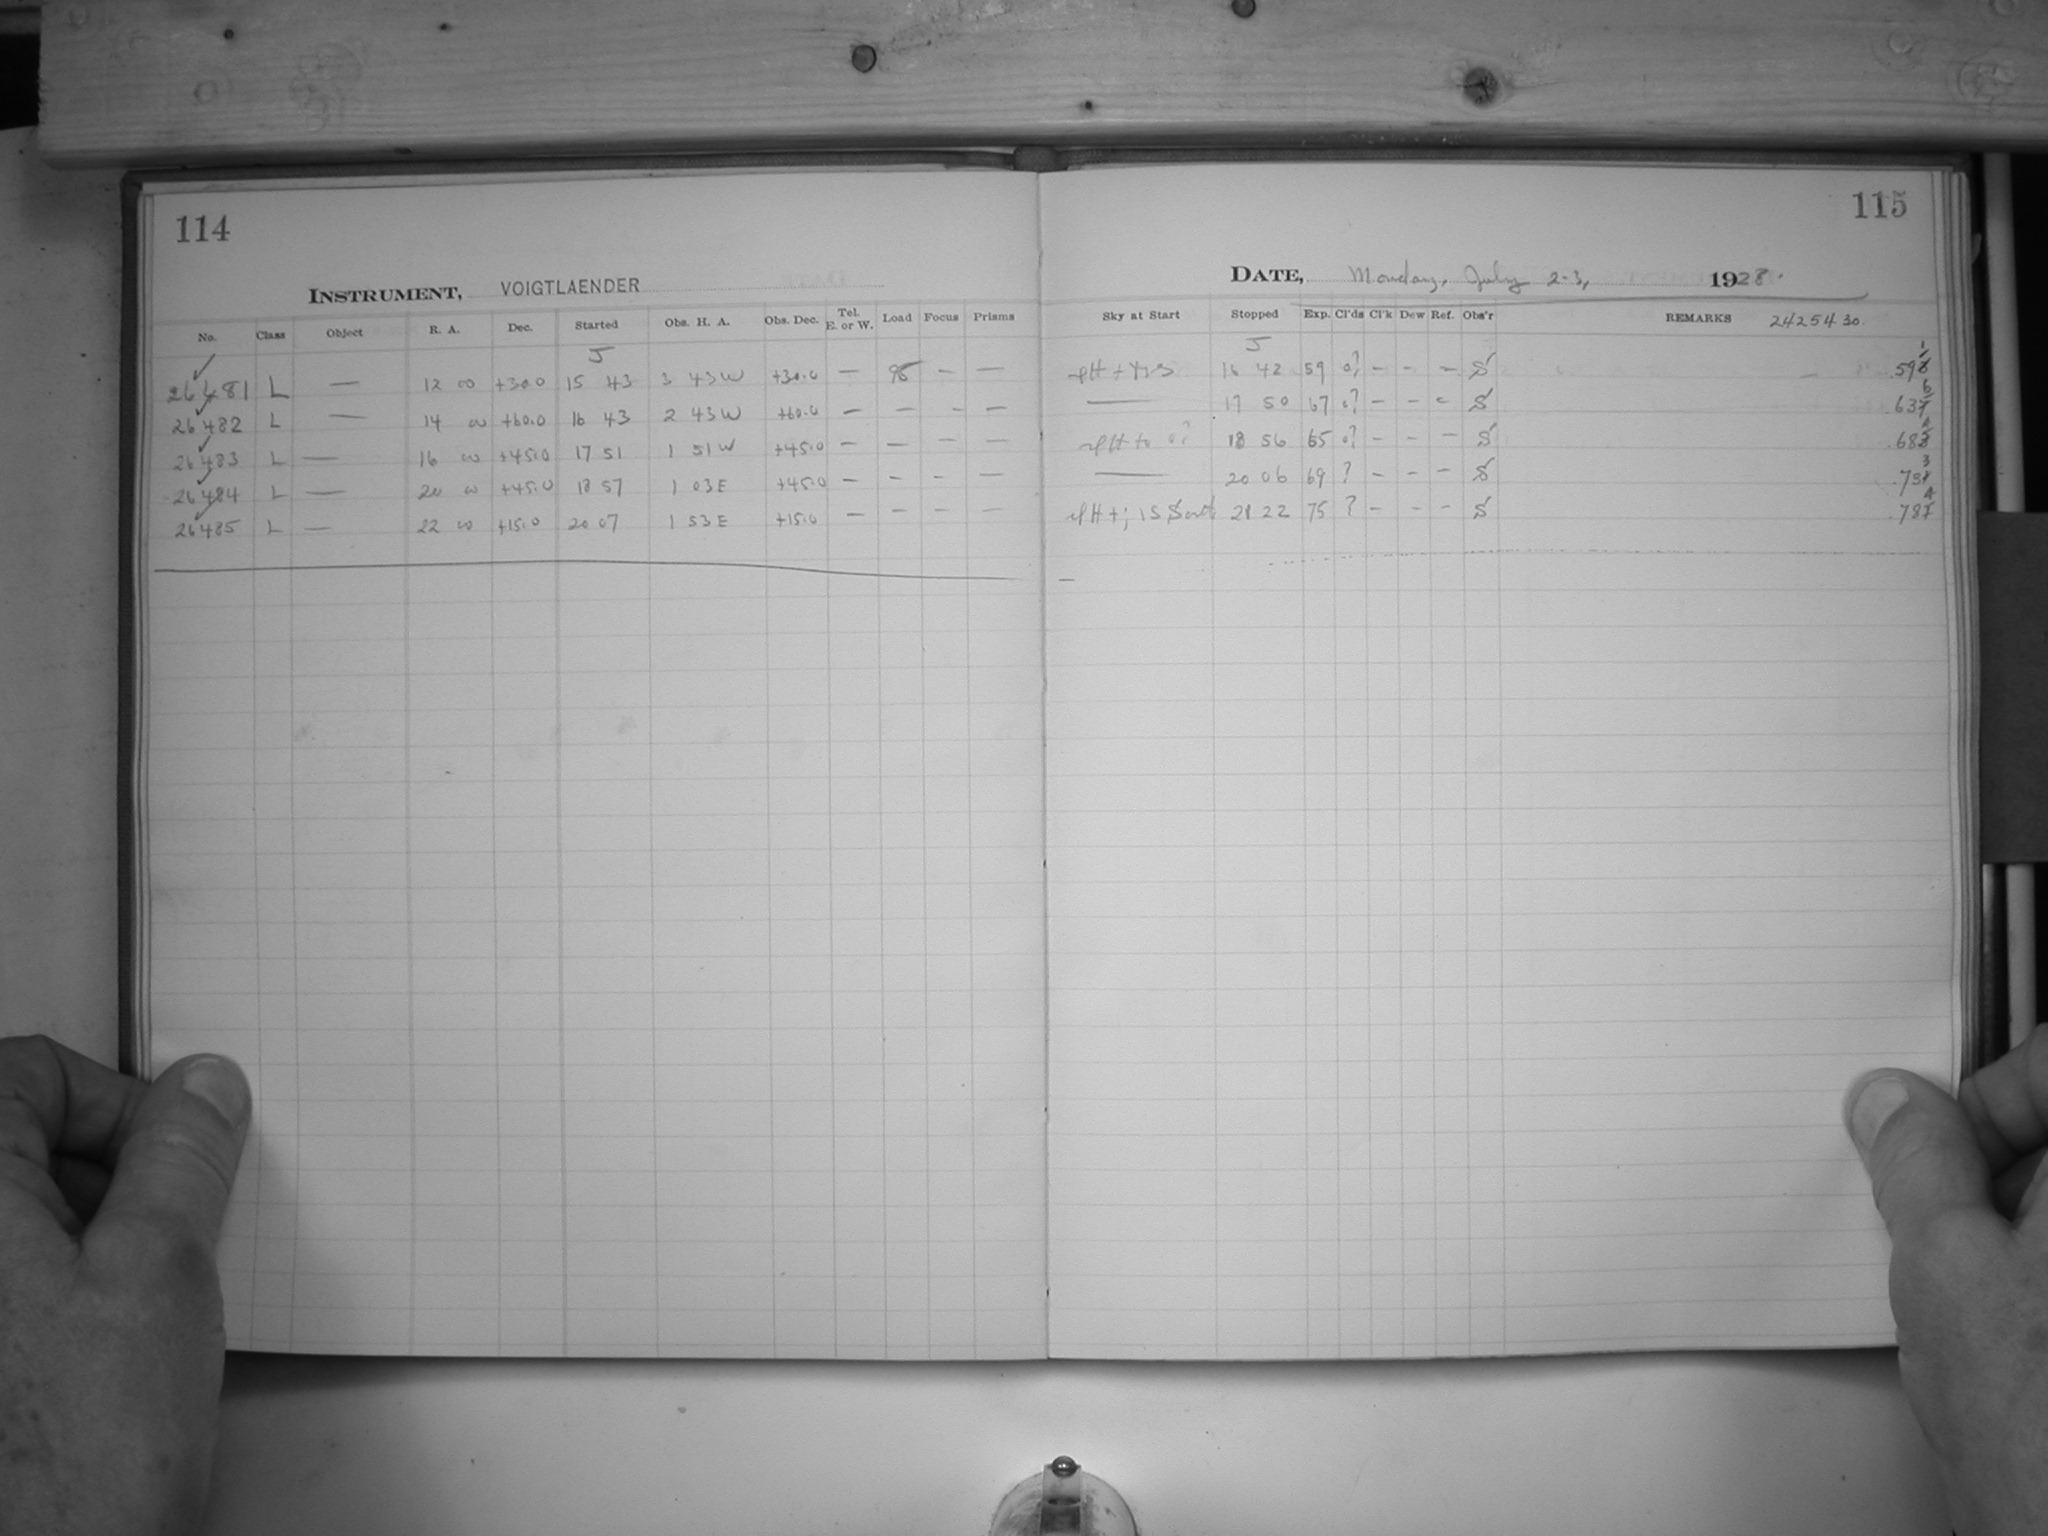 114
INSTRUMENT, VOIGTLAENDER
No. Class Object R. A. Dec. Started Obs. H. A. Obs. Dec. Tel. E. or W. Load Focus Prisms
5
26481 L — 12 00 +30.0 15 43 3 43 W +30.0 — 98 — —
26482 L — 14 00 +60.0 16 43 2 43 W +60.0 — — — —
26483 L — 16 00 +45.0 17 51 1 51 W +45.0 — — — —
26484 L — 20 00 +45.0 18 57 1 03 E +45.0 — — — —
26485 L — 22 00 +15.0 20 07 1 53 E +15.0 — — — —
115
DATE, Monday, July 2-3, 1928.
Sky at Start Stopped Exp. Cl'ds Cl'k Dew Ref. Obs'r REMARKS 2425430.
5
16 42 59 0? — — — S .591
— 17 50 67 0? — — — S .636
18 56 65 0? — — — S
— 20 06 69 ? — — — S .733
21 22 75 ? — — — S .784